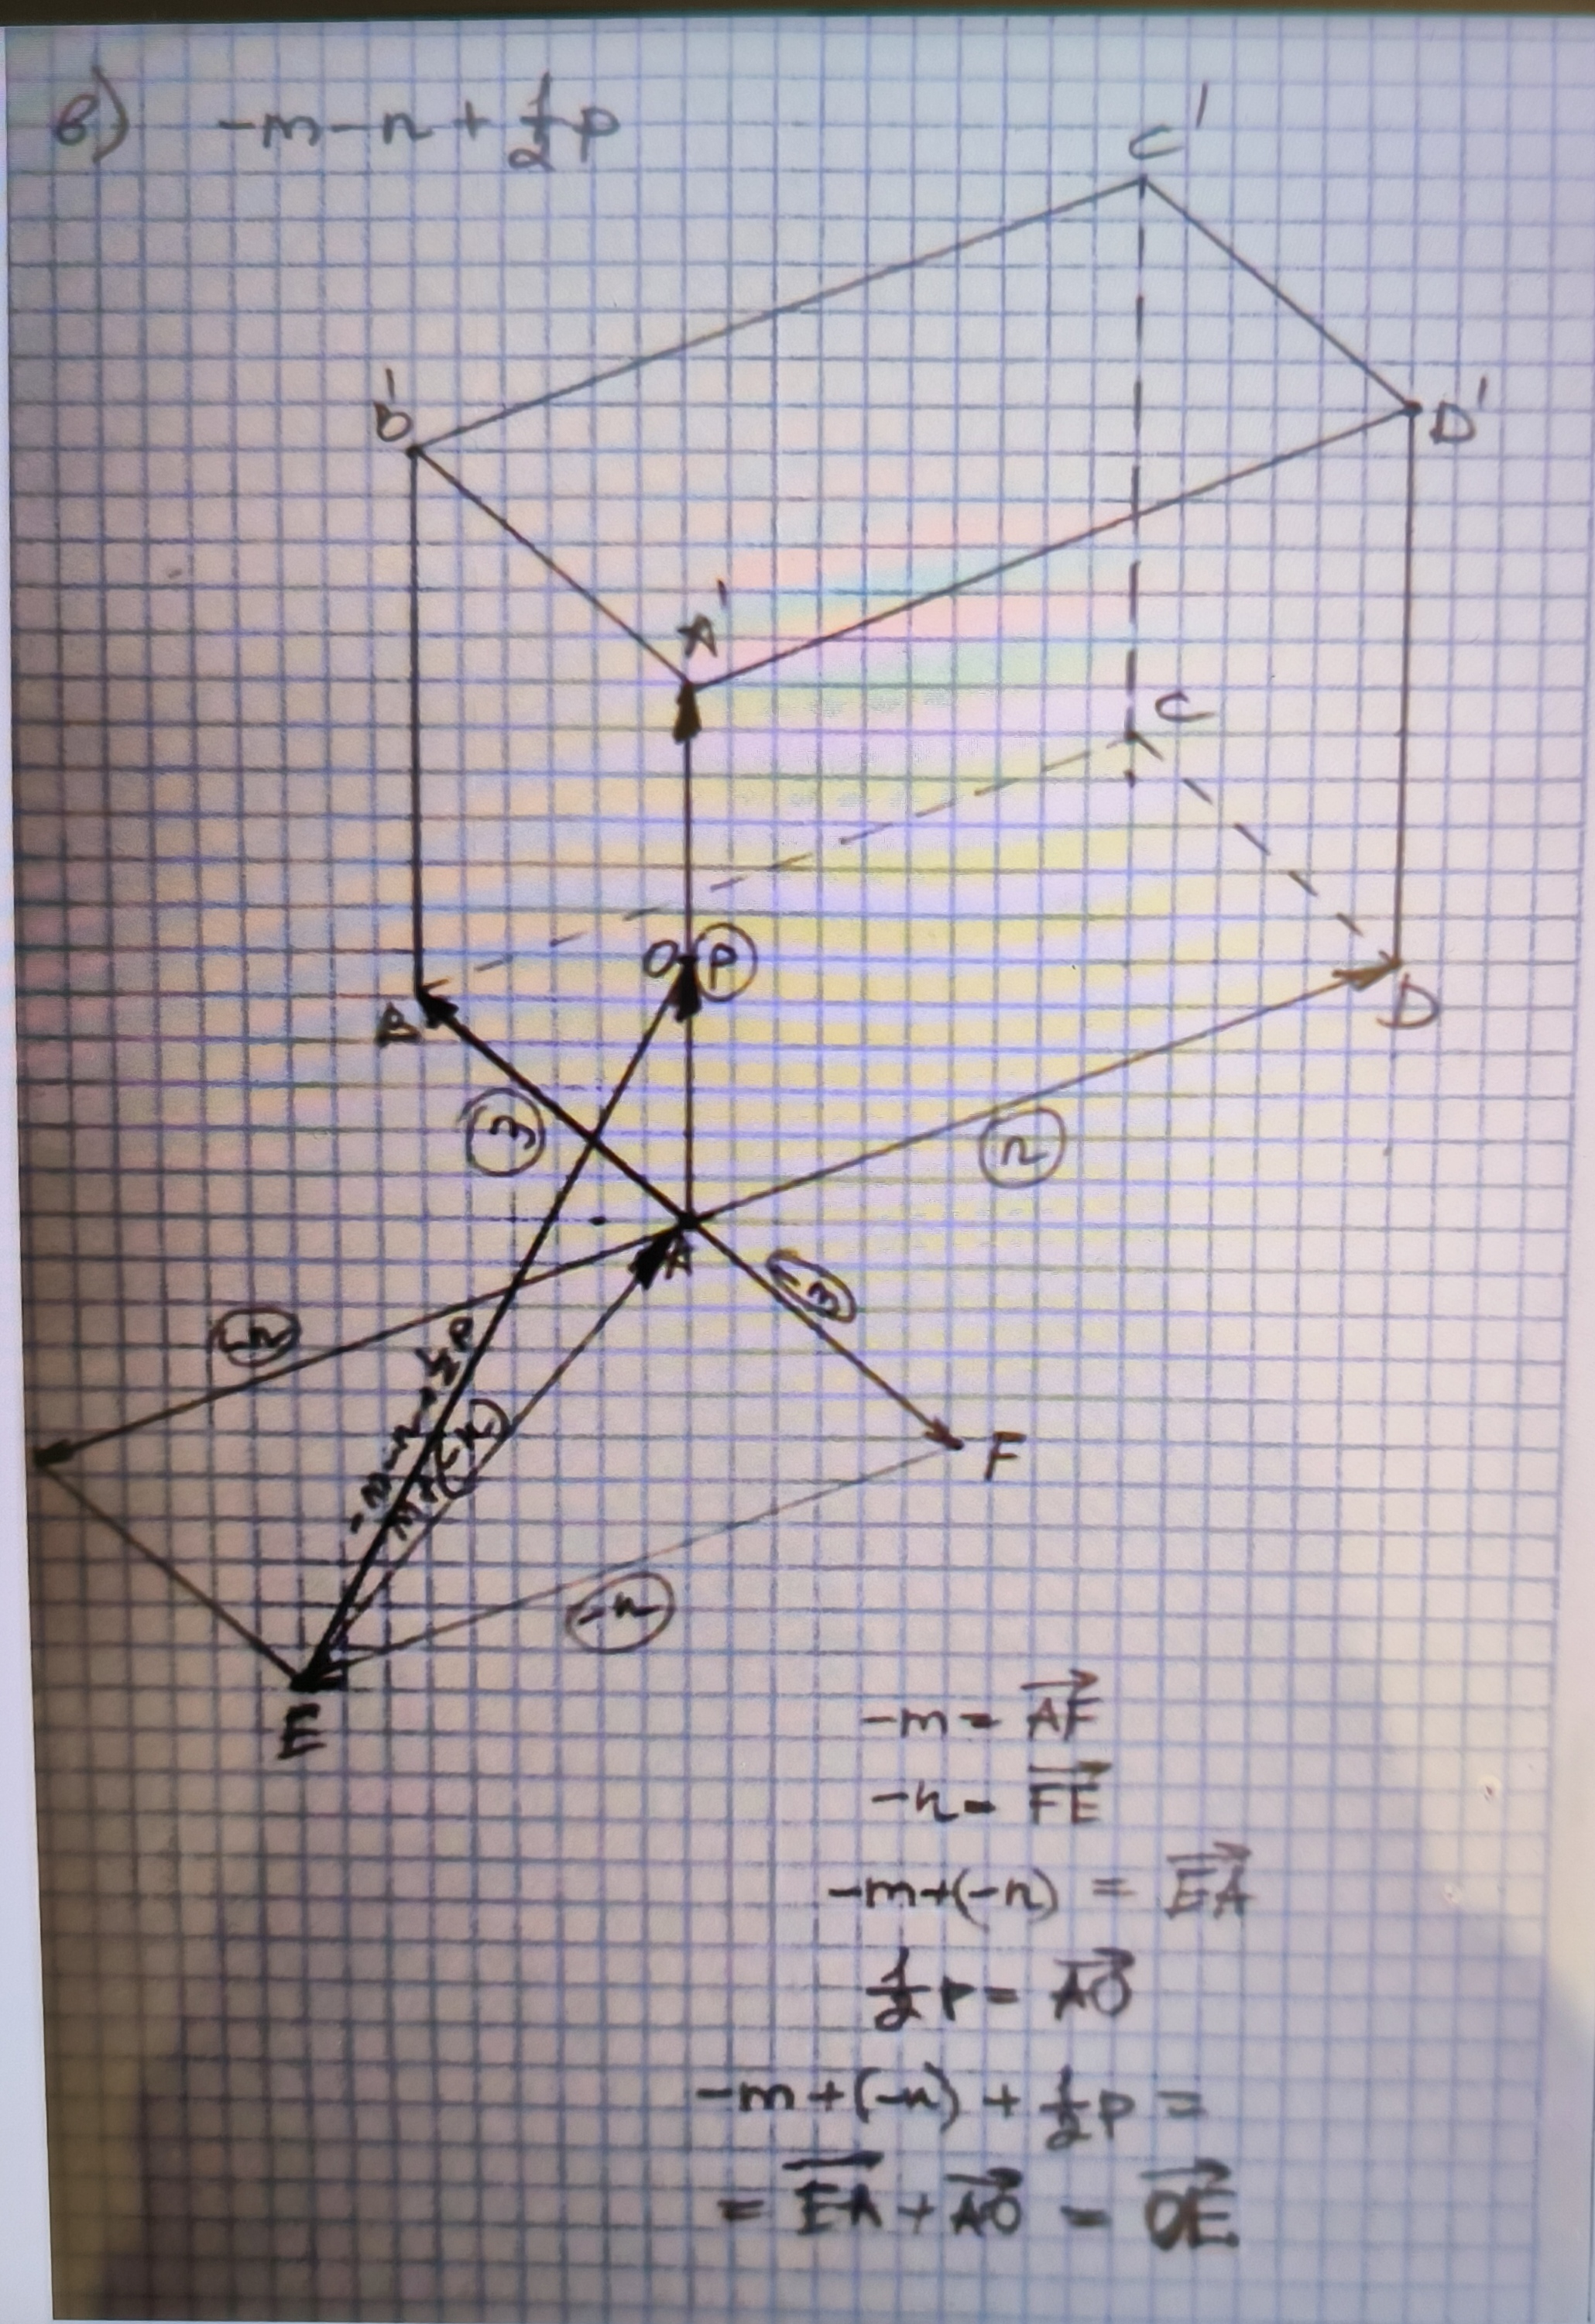 в) -m-n+½p
C'
B'
D'
A'
C
O P
B
D
m
n
A
-m
-n
-m-n+½p
m+(-n)
F
-n
E
-m = AF
-n = FE
-m+(-n) = EA
½p = AO
-m+(-n)+½p =
= EA + AO = OE